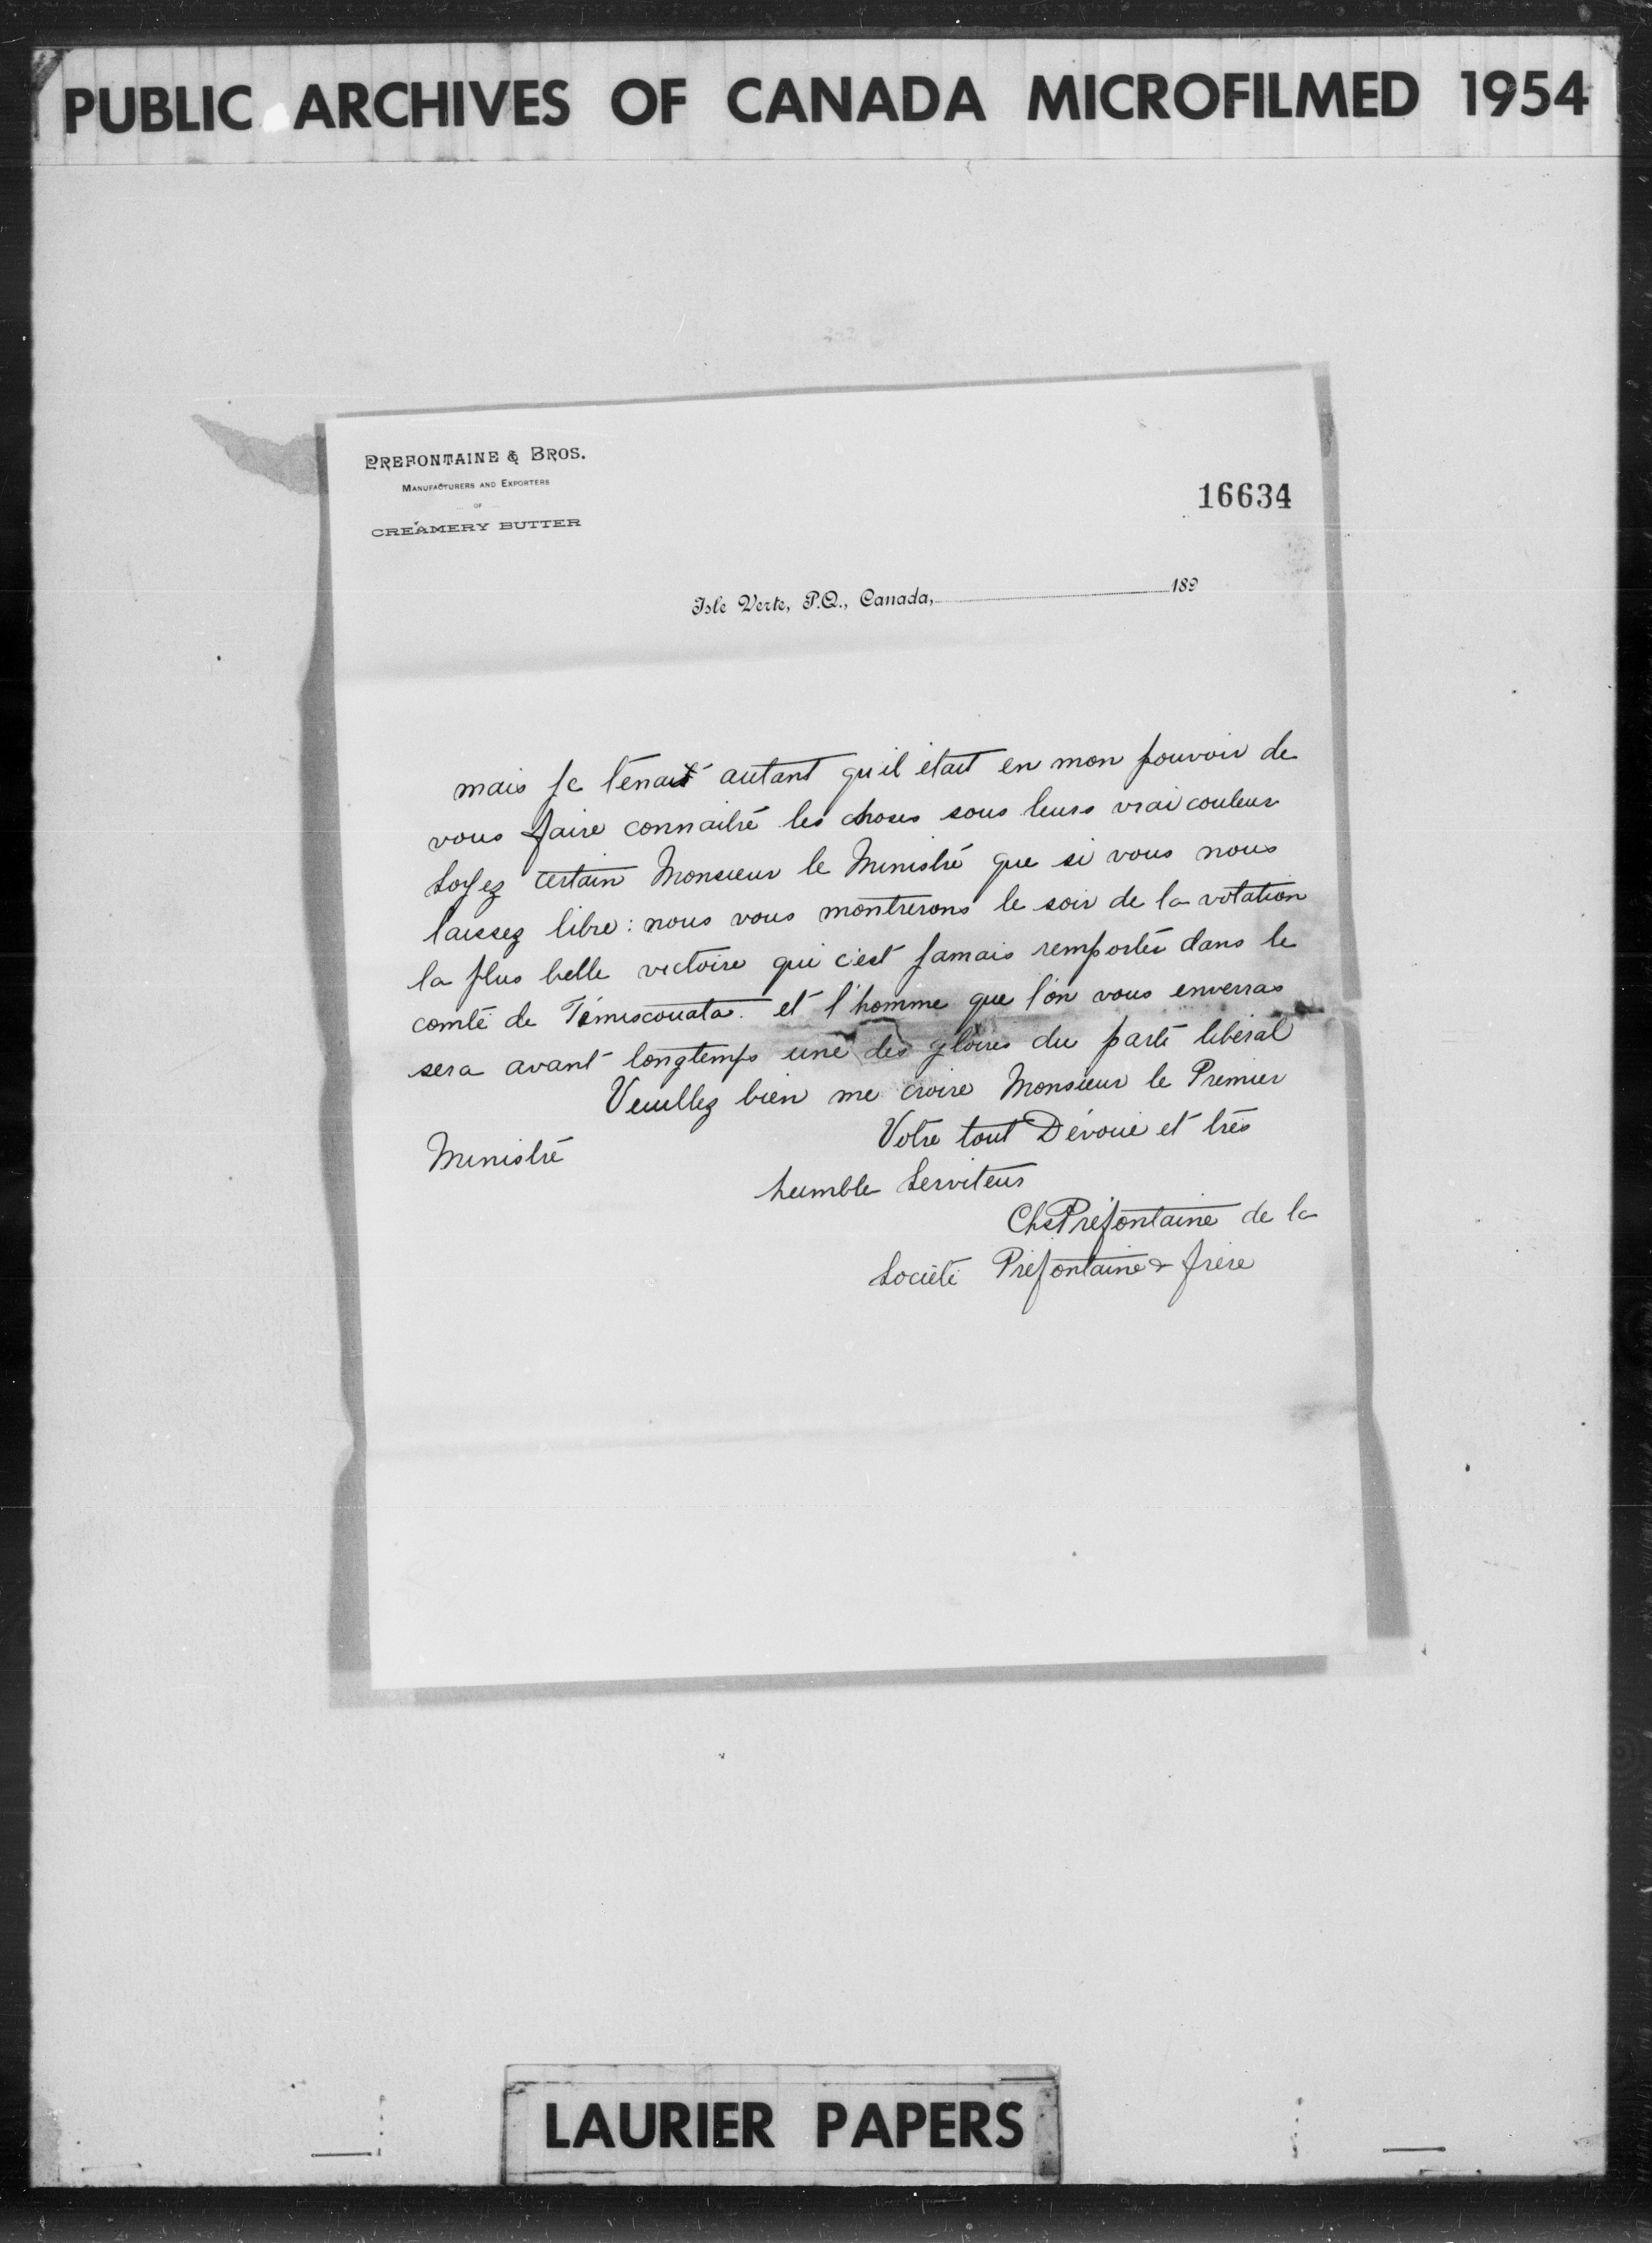 PUBLIC ARCHIVES OF CANADA MICROFILMED 1954
PREFONTAINE & BROS.
MANUFACTURERS AND EXPORTERS
OF
CREAMERY BUTTER
16634
Isle Verte, P.Q., Canada, 189
mais je tenait autant qu'il était en mon pouvoir de
vous faire connaitre les choses sous leurs vrai couleur
Soyez certain Monsieur le Ministre que si vous nous
laissez libre : nous vous montrerons le soir de la votation
la plus belle victoire qui c'est jamais remportée dans le
comté de Témiscouata. et l'homme que l'on vous enverras
sera avant longtemps une des gloires du parti libéral
Veuillez bien me croire Monsieur le Premier
Ministre
Votre tout Dévoué et très
humble Serviteur
Chs Préfontaine de la
Société Préfontaine & frère
LAURIER PAPERS